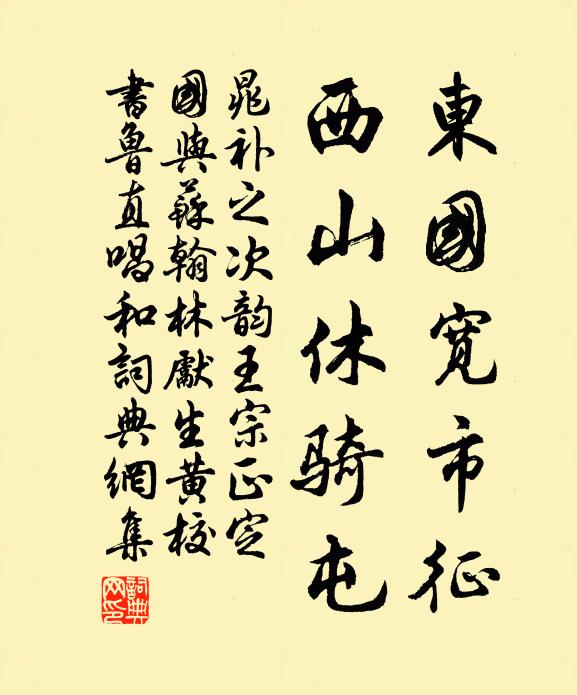 東國寬市征
西山休騎屯
晁补之次韵王宗正定
國與蘇翰林獻生黄校
書魯直唱和詞典網集
詞典
网印